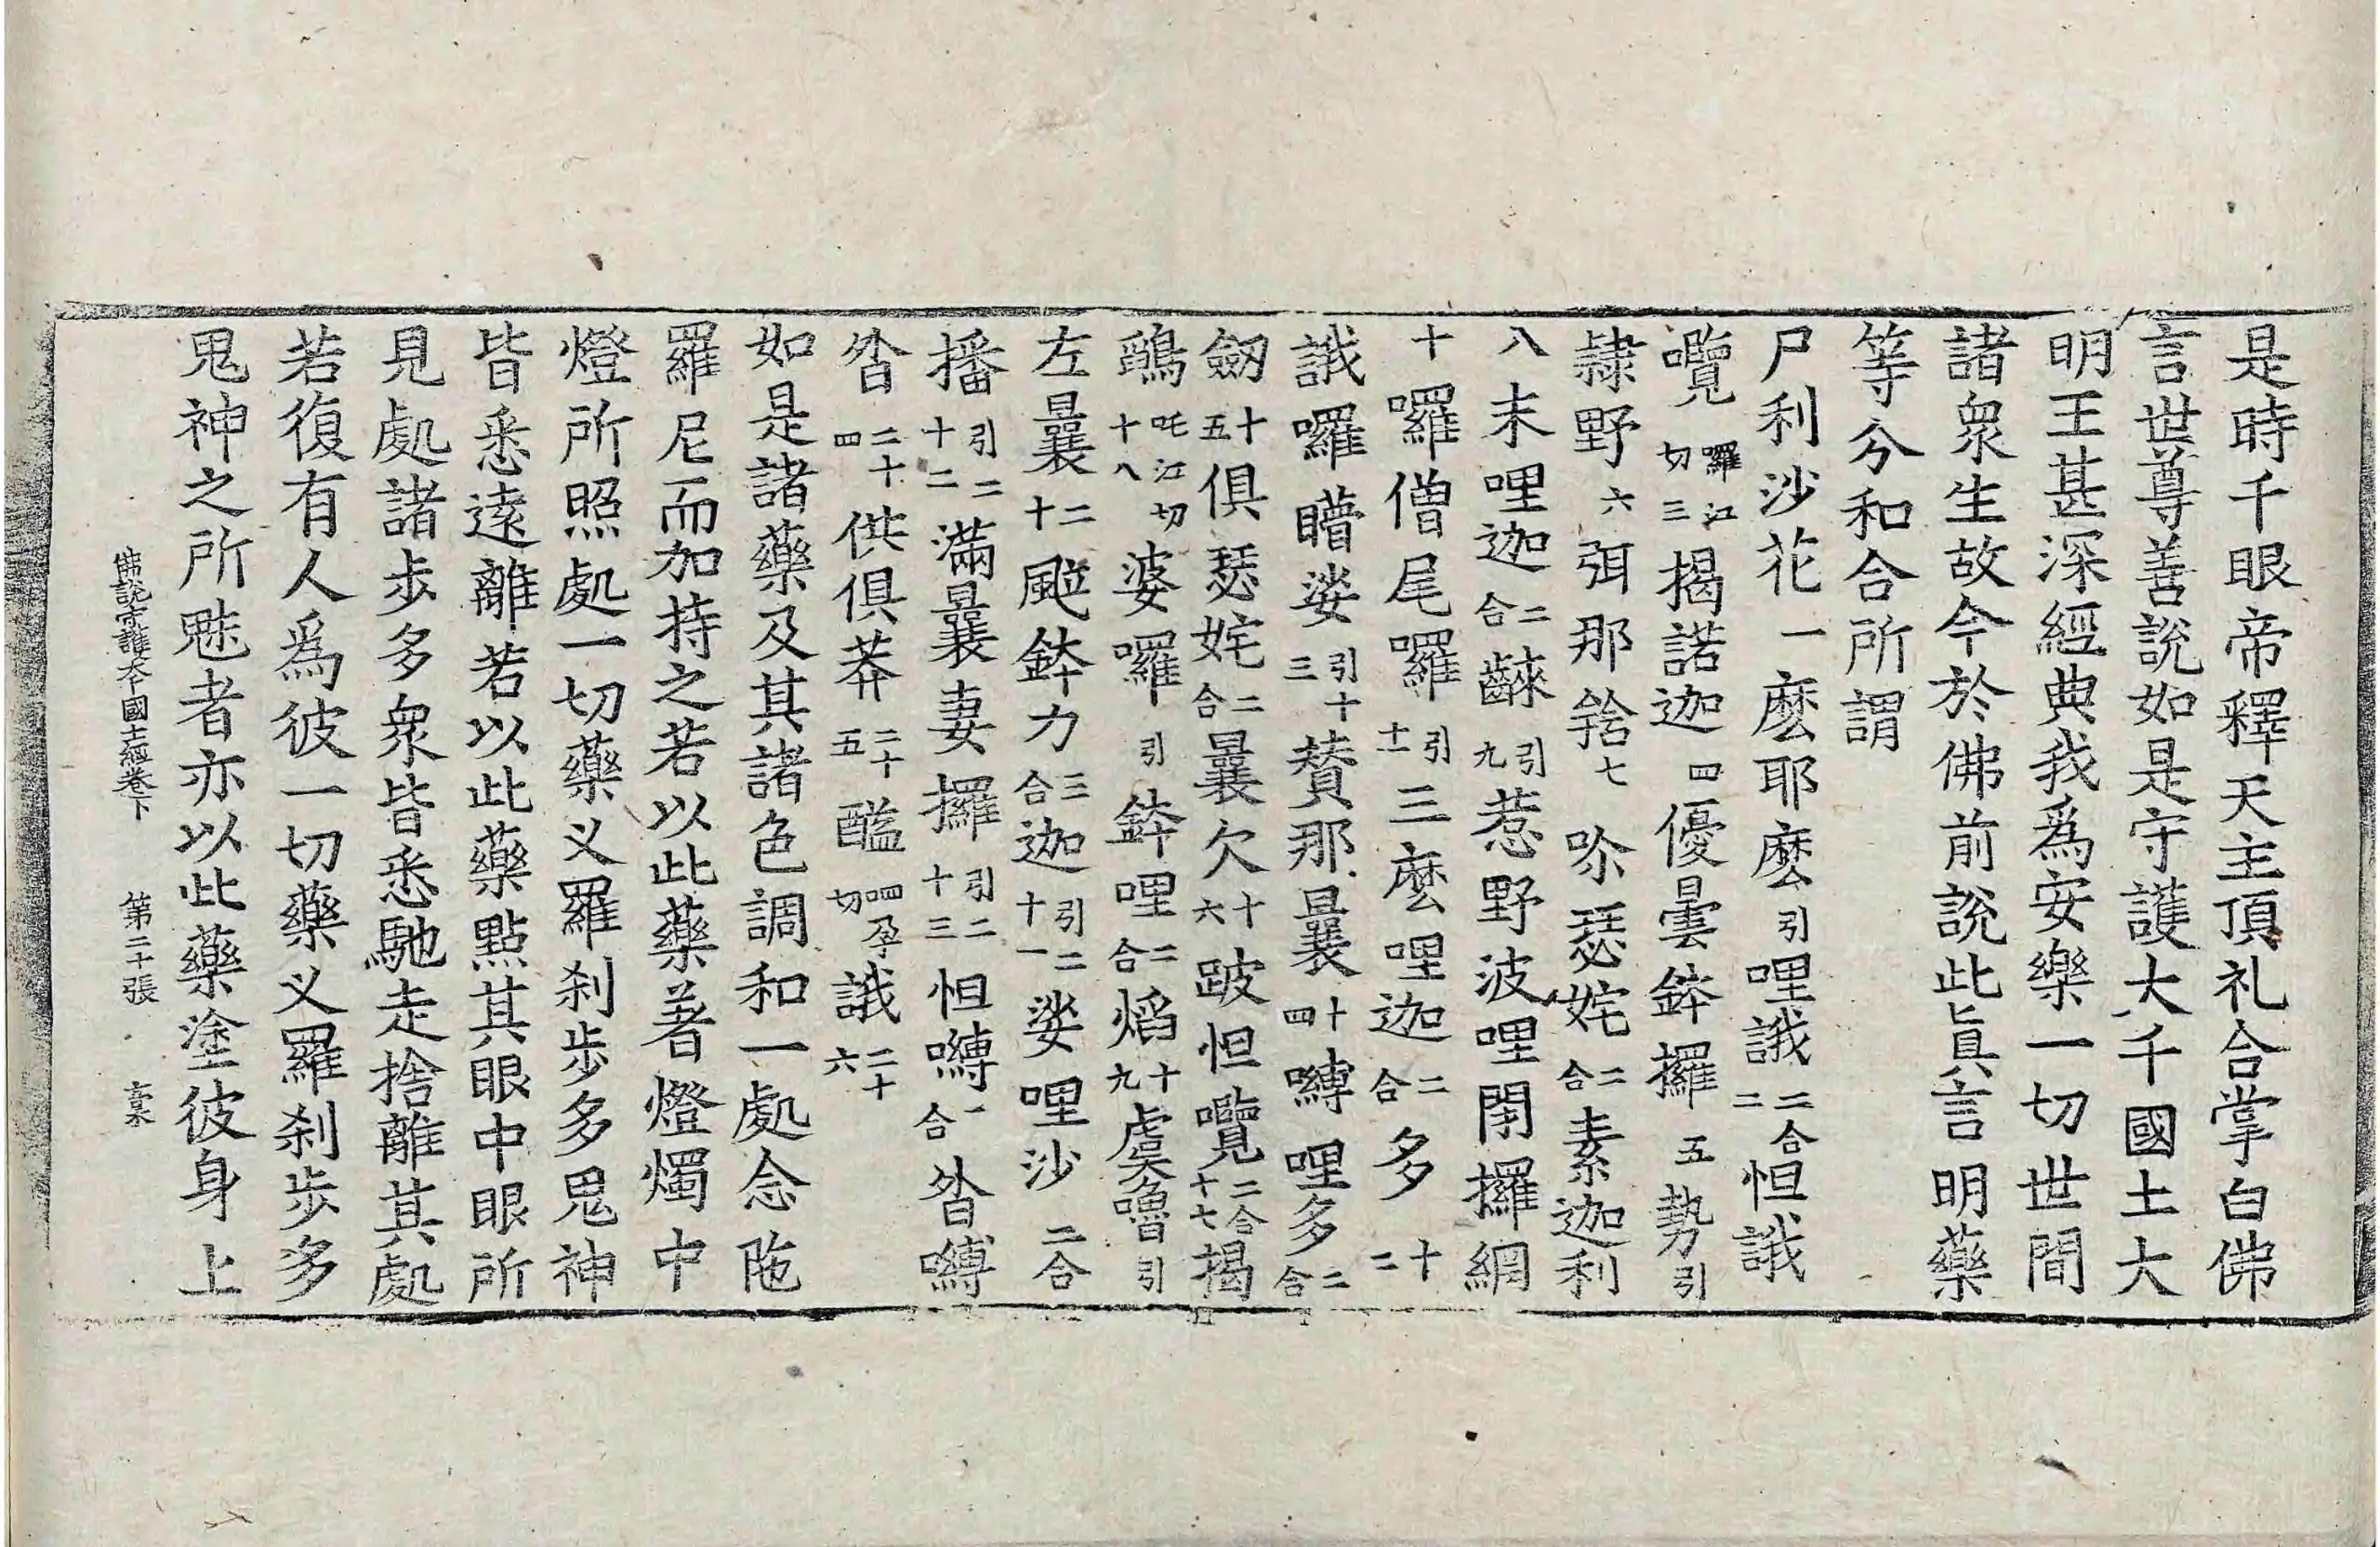 是時千眼帝釋天主頂礼合掌白佛
言世尊善說如是守護大千國土大
明王甚深經典我爲安樂一切世間
諸衆生故今於佛前說此眞言明藥
等分和合所謂
尸利沙花一麽耶麽引哩誐二合二怛誐
囕囉江切三揭諾迦四優曇鉢攞五勢引
隷野六弭那䬶七吤瑟姹二合素迦利
八末哩迦二合䶘引九惹野波哩閉攞網
十囉僧尾囉引十一三麽哩迦二合多十二
誐囉矒娑引十三賛那曩十四嚩哩多二合
劒十五俱瑟姹二合曩欠十六跛怛囕二合十七揭
鴊吒江切十八婆囉引鉢哩二合焰十九虞嚕引
左曩二十颰鉢力三合迦引二十一娑哩沙二合
播引二十二滿曩妻攞引二十三怛嚩一合沓嚩
沓二十四供俱莽二十五䤈四孕切誐二十六
如是諸藥及其諸色調和一處念陁
羅尼而加持之若以此藥著燈燭中
燈所照處一切藥义羅刹步多鬼神
皆悉遠離若以此藥點其眼中眼所
見處諸步多衆皆悉馳走捨離其處
若復有人爲彼一切藥义羅刹步多
鬼神之所魅者亦以此藥塗彼身上
佛說守護大千國土經卷下 第二十張